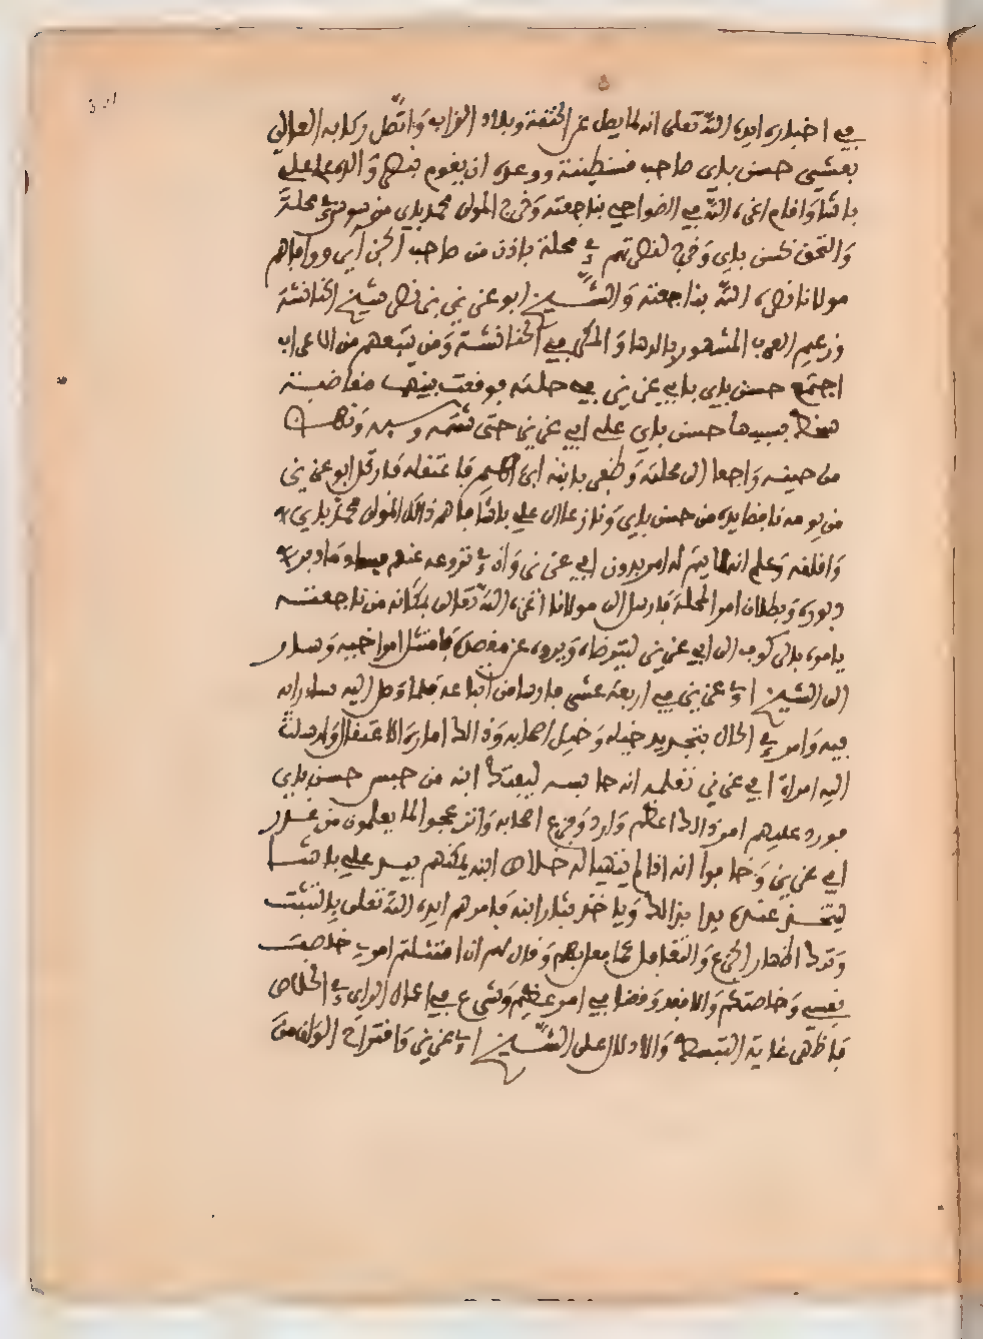 في اخباره ايده الله تعلى انه لما يصل عن الخنقة وبلاد الزاب واتصل ركابه العالي
بعشي حسن باي صاحب قسنطينة ووعده ان يقوم بنصره والده علي
باشا واقام اعزه الله في الضواحي بناجعته وخرج المولى محمد باي من سوس في محلة
والتحق حسن باي وخرج لنصرتهم في محلة باذن من صاحب الجزائر ووافاهم
مولانا نصره الله بناجعته والشيخ ابو عزيز بن نصر شيخ الحنانشة
وزعيم العرب المشهور بالدها والمكر في الحنانشة ومن يتبعهم من الاعراب
اجتمع حسن باي بابي عزيز في حلته فوقعت بينهما مفاوضة
بسببها حسن باي على ابي عزيز حتى شتمه وسبه ونهض
من حينه راجعا الى محلته وظفر بابنه ابراهيم فاعتقله فارتحل ابو عزيز
من يومه نافضا يده من حسن باي ونازعا الى علي باشا فاهم ذالك المولى محمد باي
واقلقه وعلم انه لا يتم له امر بدون ابي عزيز وان في نزوعه عنهم
وبطلان امر المحلة فارسل الى مولانا اعزه الله تعالى بمكانه من ناجعته
يامره بالركوب الى ابي عزيز ليترضاه ويرده عن مقصده فامتثل امر اخيه وسار
الى الشيخ ابي عزيز في اربعة عشر فارسا من اتباعه فلما وصل اليه
فيه وامر في الحال بتجريد خيله وخيل اصحابه وذالك امارة الاعتقال وارسلت
اليه امراة ابي عزيز تعلمه انه حابسه ليفتك ابنه من حبس حسن باي
فورد عليهم امر ذالك اعظم وارد وجزع اصحابه وانزعجوا لما يعلمون من غدر
ابي عزيز وخافوا انه اذا لم يتهيا له خلاص ابنه يمكنهم بيد علي باشا
ليتخذ عنده يدا بذالك وياخذ بثار ابنه فامرهم ايده الله تعلى بالتثبت
وترك اظهار الجزع والتغافل عما فعل بهم وقال لهم ان امتثلتم امري خلصت
نفسي وخلصتكم والا فقد وقعنا في امر عظيم وشرع في اعمال الراي في الخلاص
فاظهر غاية التبسط والادلال على الشيخ ابي عزيز واقتراح الوان من